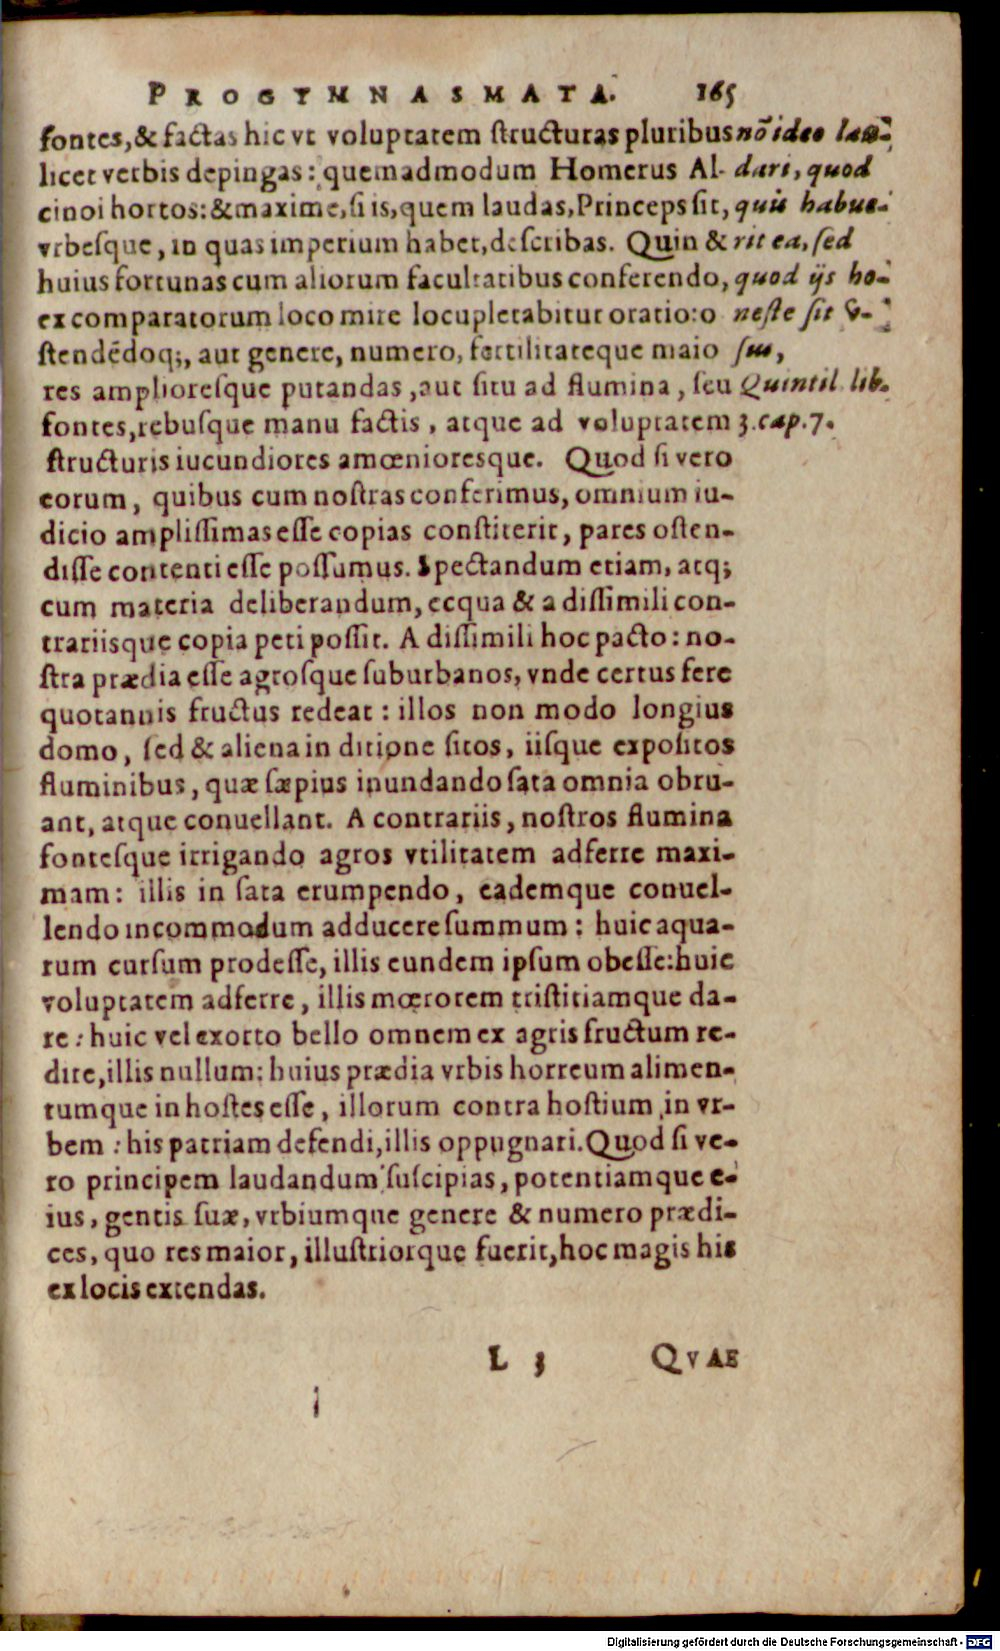 PROGYMNASMATA. 165
fontes, & factas hic vt voluptatem structuras pluribus
licet verbis depingas: quemadmodum Homerus Al-
cinoi hortos: & maxime, si is, quem laudas, Princeps sit,
vrbesque, in quas imperium habet, describas. Quin &
huius fortunas cum aliorum facultatibus conferendo,
ex comparatorum loco mire locupletabitur oratio: o
stendēdoq;, aut genere, numero, fertilitateque maio
res amplioresque putandas, aut situ ad flumina, seu
fontes, rebusque manu factis, atque ad voluptatem
structuris iucundiores amœnioresque. Quod si vero
eorum, quibus cum nostras conferimus, omnium iu-
dicio amplissimas esse copias constiterit, pares osten-
disse contenti esse possumus. Spectandum etiam, atq;
cum materia deliberandum, ecqua & a dissimili con-
trariisque copia peti possit. A dissimili hoc pacto: no-
stra prædia esse agrosque suburbanos, vnde certus fere
quotannis fructus redeat: illos non modo longius
domo, sed & aliena in ditione sitos, iisque expositos
fluminibus, quæ sæpius inundando sata omnia obru-
ant, atque conuellant. A contrariis, nostros flumina
fontesque irrigando agros vtilitatem adferre maxi-
mam: illis in sata erumpendo, eademque conuel-
lendo incommodum adducere summum: huic aqua-
rum cursum prodesse, illis eundem ipsum obesse: huic
voluptatem adferre, illis mœrorem tristitiamque da-
re: huic vel exorto bello omnem ex agris fructum re-
dire, illis nullum: huius prædia vrbis horreum alimen-
tumque in hostes esse, illorum contra hostium in vr-
bem: his patriam defendi, illis oppugnari. Quod si ve-
ro principem laudandum suscipias, potentiamque e-
ius, gentis suæ, vrbiumque genere & numero prædi-
ces, quo res maior, illustriorque fuerit, hoc magis his
ex locis extendas.
nō ideo lau-
dari, quod
quis habue-
rit ea, sed
quod ijs ho-
neste sit v-
sus,
Quintil. lib.
3. cap. 7.
L 3 QVAE
Digitalisierung gefördert durch die Deutsche Forschungsgemeinschaft - DFG